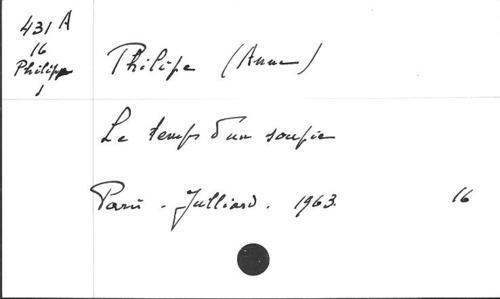 431 A
16
Philipe
1
Philipe (Anne)
Le temps d'un soupir
Paris - Julliard. 1963. 16